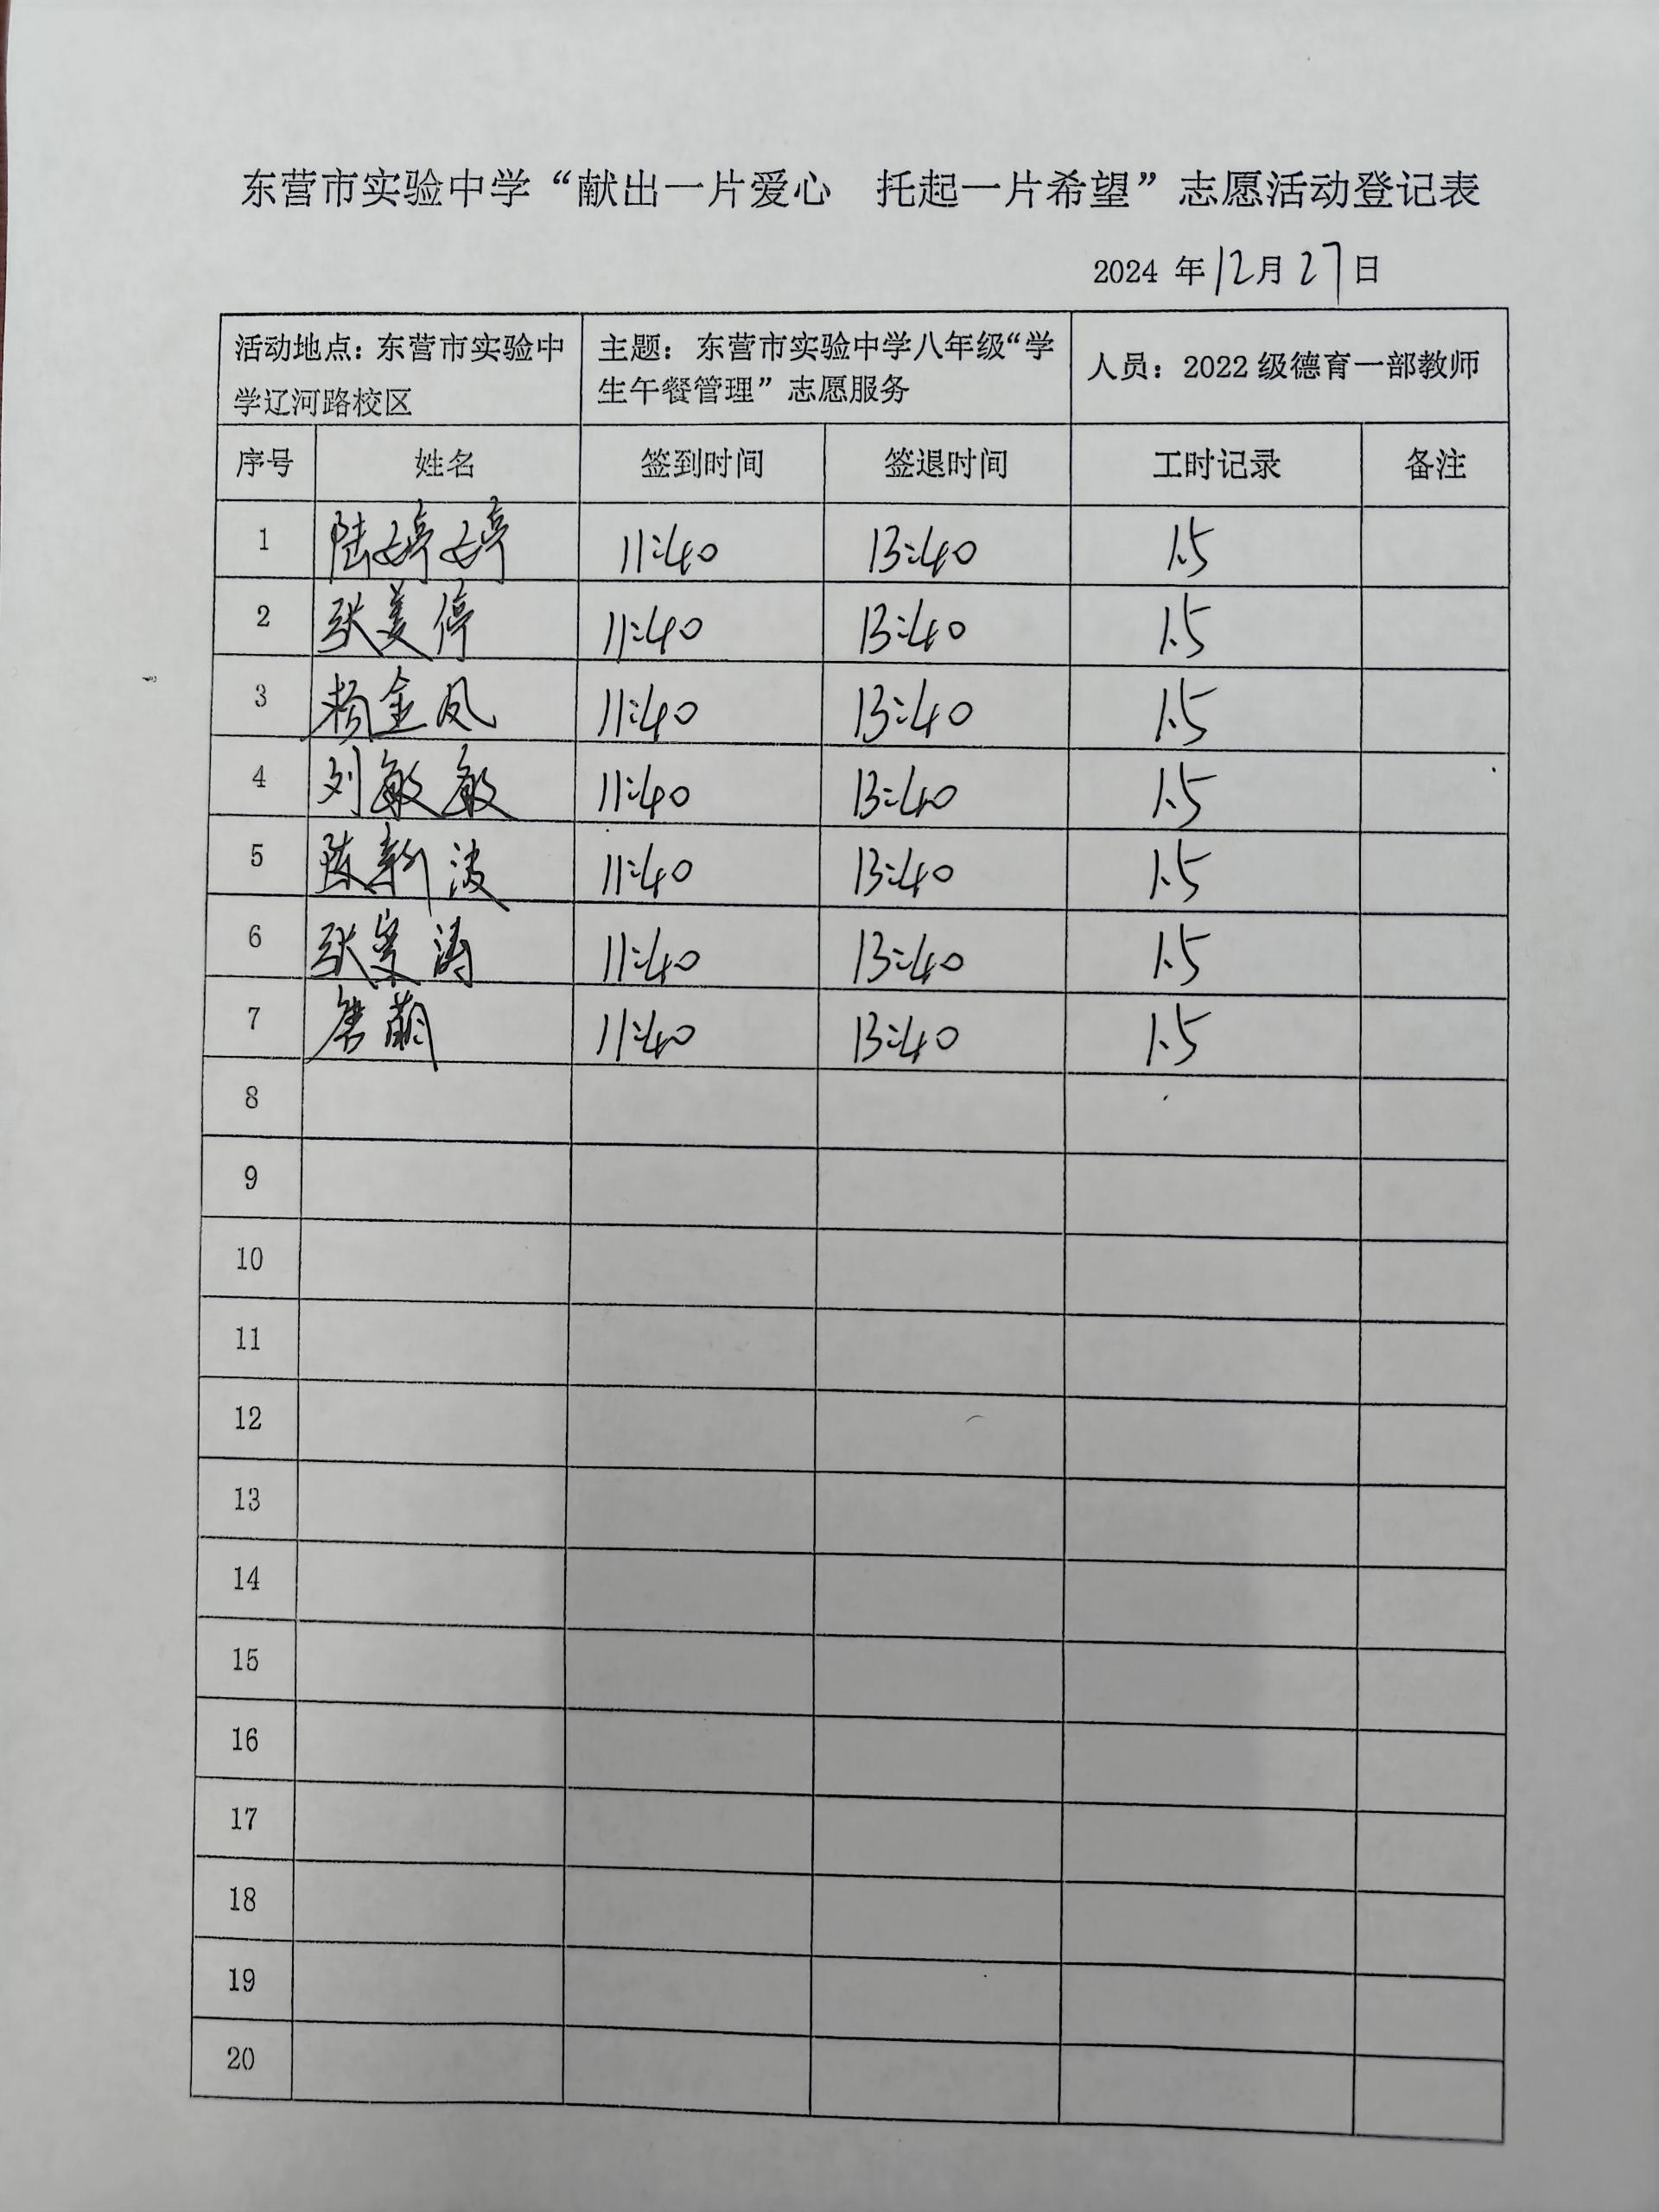 东营市实验中学“献出一片爱心　托起一片希望”志愿活动登记表
2024 年 12 月 27 日
活动地点：东营市实验中
学辽河路校区
主题：东营市实验中学八年级“学
生午餐管理”志愿服务
人员：2022 级德育一部教师
序号 姓名 签到时间 签退时间 工时记录 备注
1 陆婷婷 11:40 13:40 1.5
2 张美停 11:40 13:40 1.5
3 杨金凤 11:40 13:40 1.5
4 刘敏敏 11:40 13:40 1.5
5 陈新波 11:40 13:40 1.5
6 11:40 13:40 1.5
7 唐萌 11:40 13:40 1.5
8
9
10
11
12
13
14
15
16
17
18
19
20